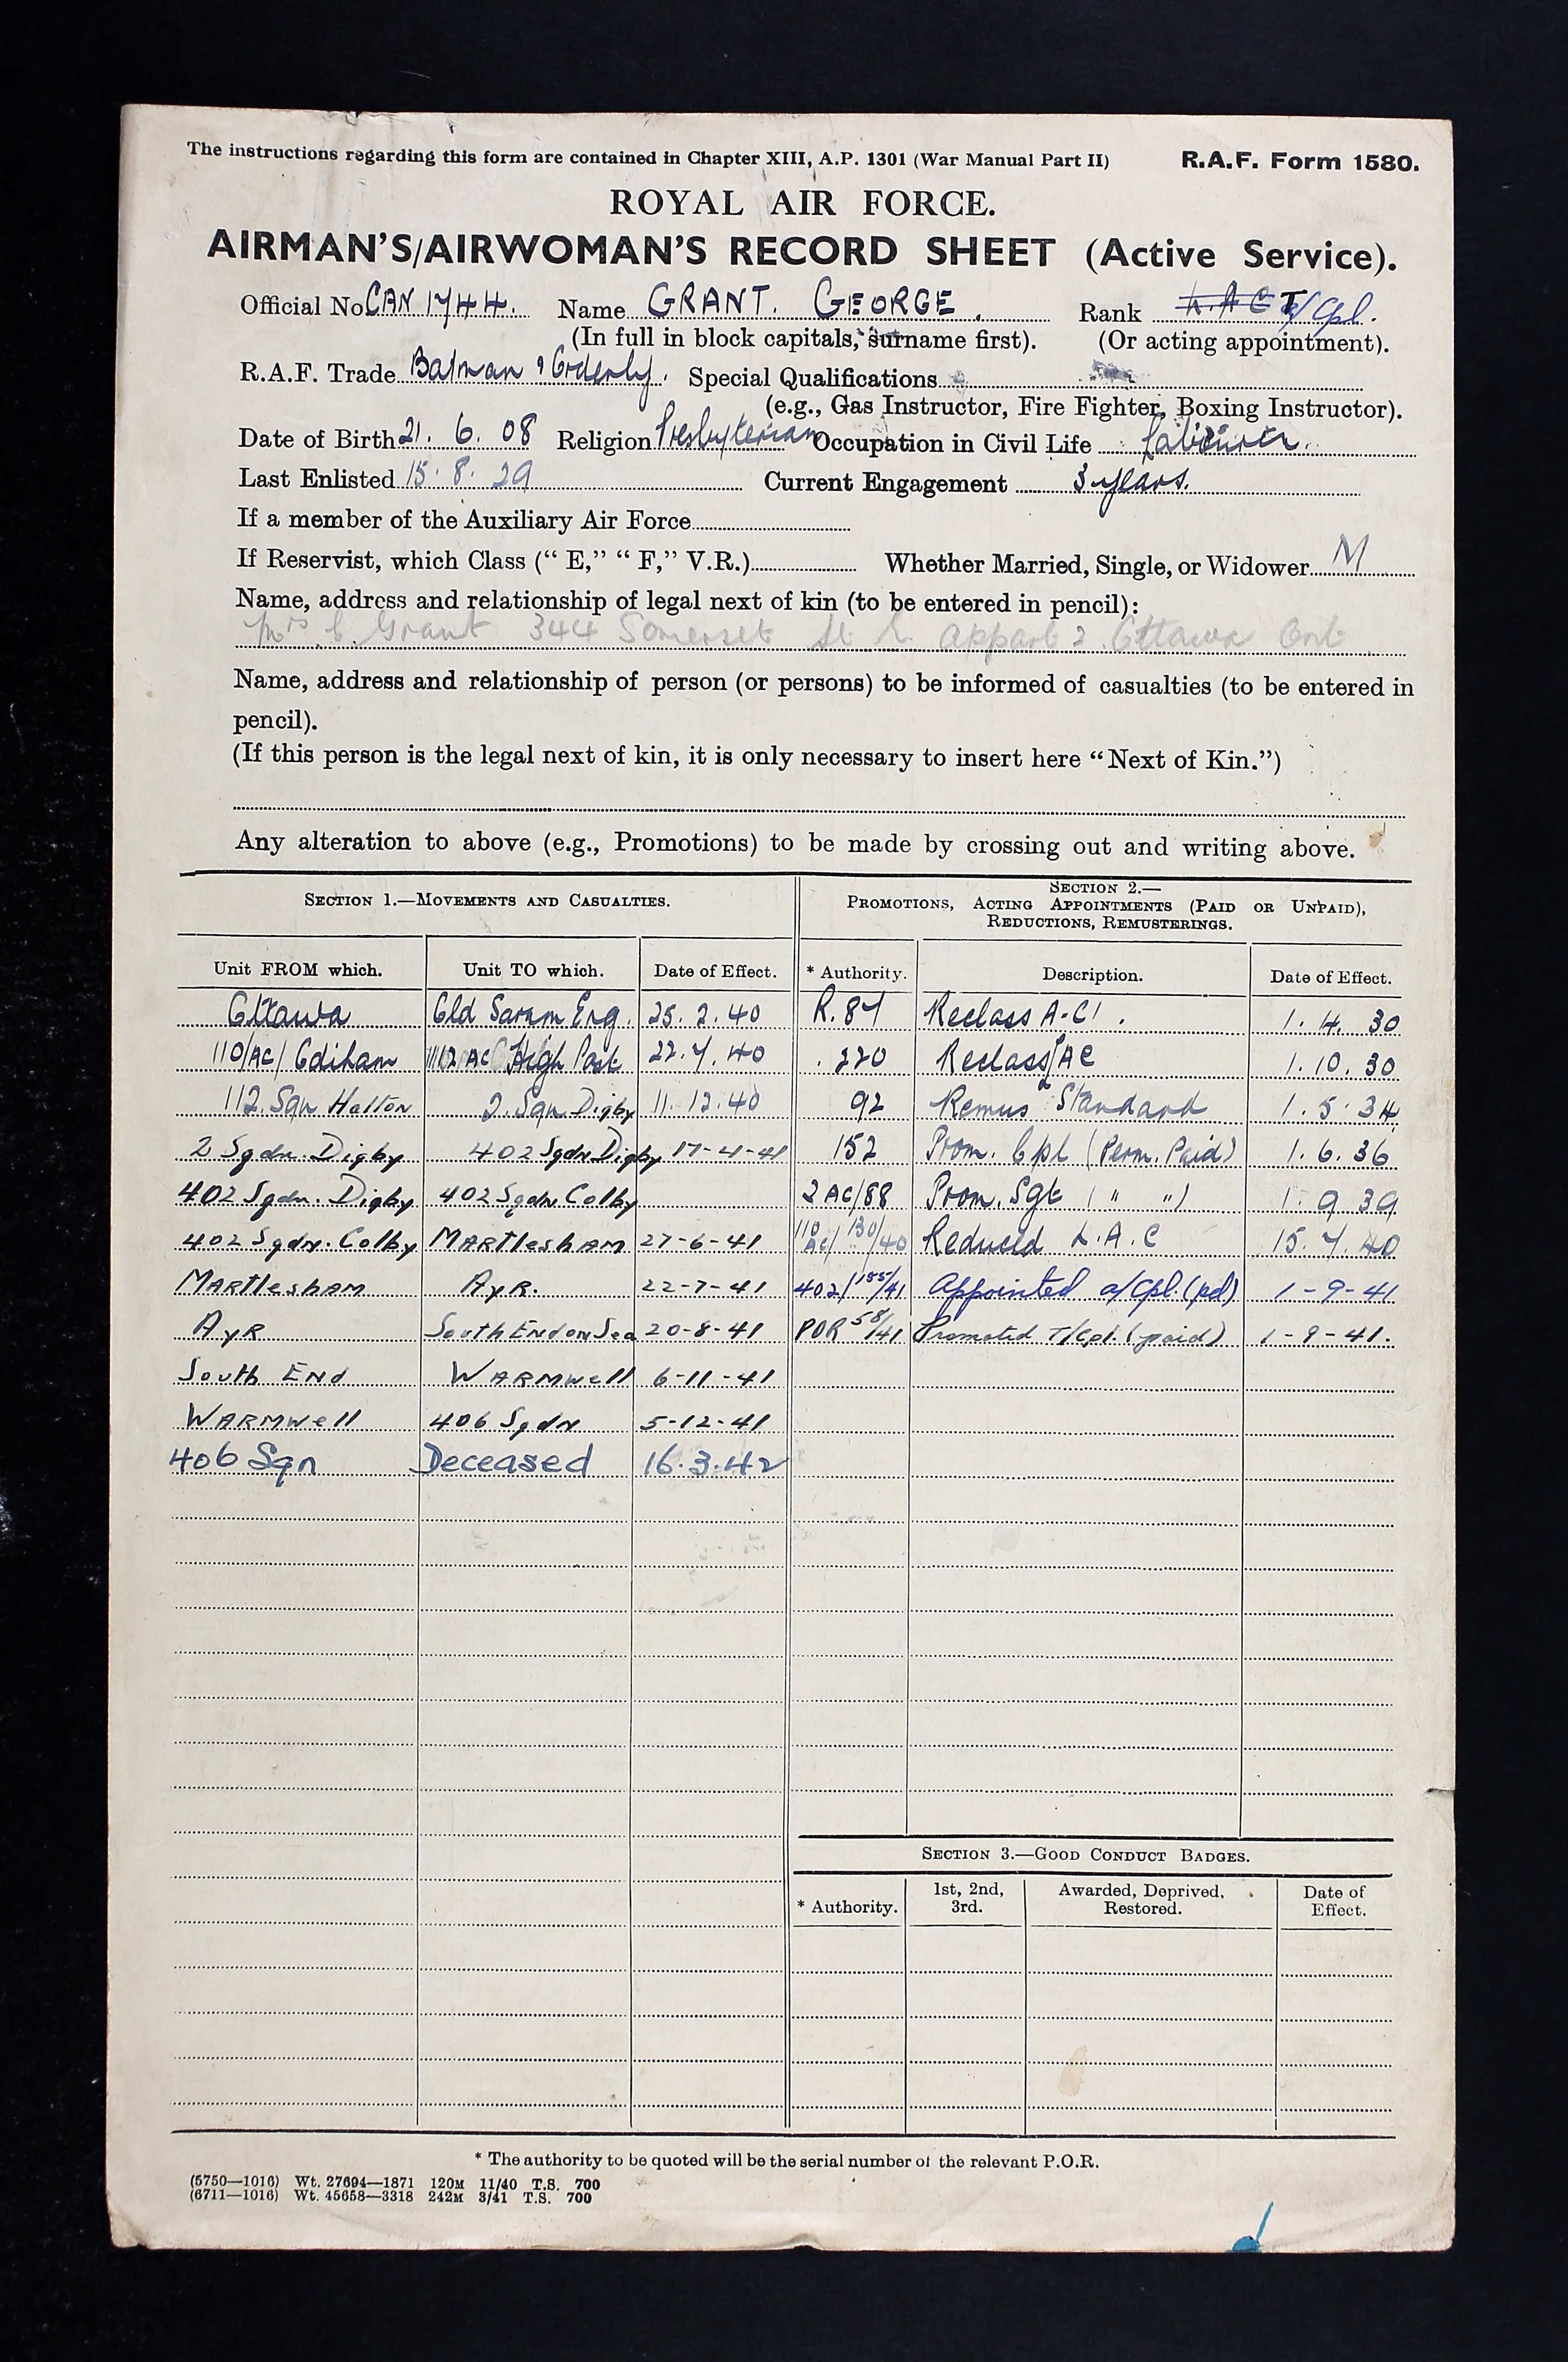 The instructions regarding this form are contained in Chapter XIII, A.P. 1301 (War Manual Part II) R.A.F. Form 1580.
ROYAL AIR FORCE.
AIRMAN'S/AIRWOMAN'S RECORD SHEET (Active Service).
Official No. CAN 1744. Name GRANT. GEORGE. Rank L.A.C T/Cpl.
(In full in block capitals, surname first). (Or acting appointment).
R.A.F. Trade Batman & Orderly. Special Qualifications
(e.g., Gas Instructor, Fire Fighter, Boxing Instructor).
Date of Birth 21. 6. 08 Religion Presbyterian Occupation in Civil Life Labourer.
Last Enlisted 15. 8. 29 Current Engagement 3 years.
If a member of the Auxiliary Air Force
If Reservist, which Class (" E," " F," V.R.) Whether Married, Single, or Widower M
Name, address and relationship of legal next of kin (to be entered in pencil):
Mrs Grant 344 Somerset St E. Appart 2 Ottawa Ont
Name, address and relationship of person (or persons) to be informed of casualties (to be entered in
pencil).
(If this person is the legal next of kin, it is only necessary to insert here "Next of Kin.")
Any alteration to above (e.g., Promotions) to be made by crossing out and writing above.
SECTION 1.—MOVEMENTS AND CASUALTIES. SECTION 2.—
PROMOTIONS, ACTING APPOINTMENTS (PAID OR UNPAID),
REDUCTIONS, REMUSTERINGS.
Unit FROM which. Unit TO which. Date of Effect. * Authority. Description. Date of Effect.
Ottawa Old Sarum Eng. 25. 2. 40 R. 87 Reclass A.C1. 1. 4. 30
110/AC/ Odiham 112 AC High Post 22. 7. 40 220 Reclass LAC 1. 10. 30
112. Sqn Halton 2. Sqn Digby 11. 12. 40 92 Remus Standard 1. 5. 34
2 Sqdn. Digby 402 Sqdn Digby 17-4-41 152 Prom. Cpl (Perm. Paid) 1. 6. 36
402 Sqdn. Digby 402 Sqdn Colby 2 AC/88 Prom. Sgt ( " " ) 1. 9 39
402 Sqdn. Colby MARTlesHAM 27-6-41 110 AC/ 130/40 Reduced L.A.C 15. 7. 40
MARTlesHAM AyR. 22-7-41 402/155/41 Appointed a/Cpl. (pd) 1-9-41
AyR South End on Sea 20-8-41 POR 58/41 Promoted T/Cpl. (paid) 1-9-41.
South ENd WARMwell 6-11-41
WARMwell 406 Sqdn 5-12-41
406 Sqn Deceased 16.3.42
SECTION 3.—GOOD CONDUCT BADGES.
* Authority. 1st, 2nd, 3rd. Awarded, Deprived, Restored. Date of Effect.
* The authority to be quoted will be the serial number of the relevant P.O.R.
(5750—1016) Wt. 27694—1871 120M 11/40 T.S. 700
(6711—1016) Wt. 45658—3318 242M 3/41 T.S. 700